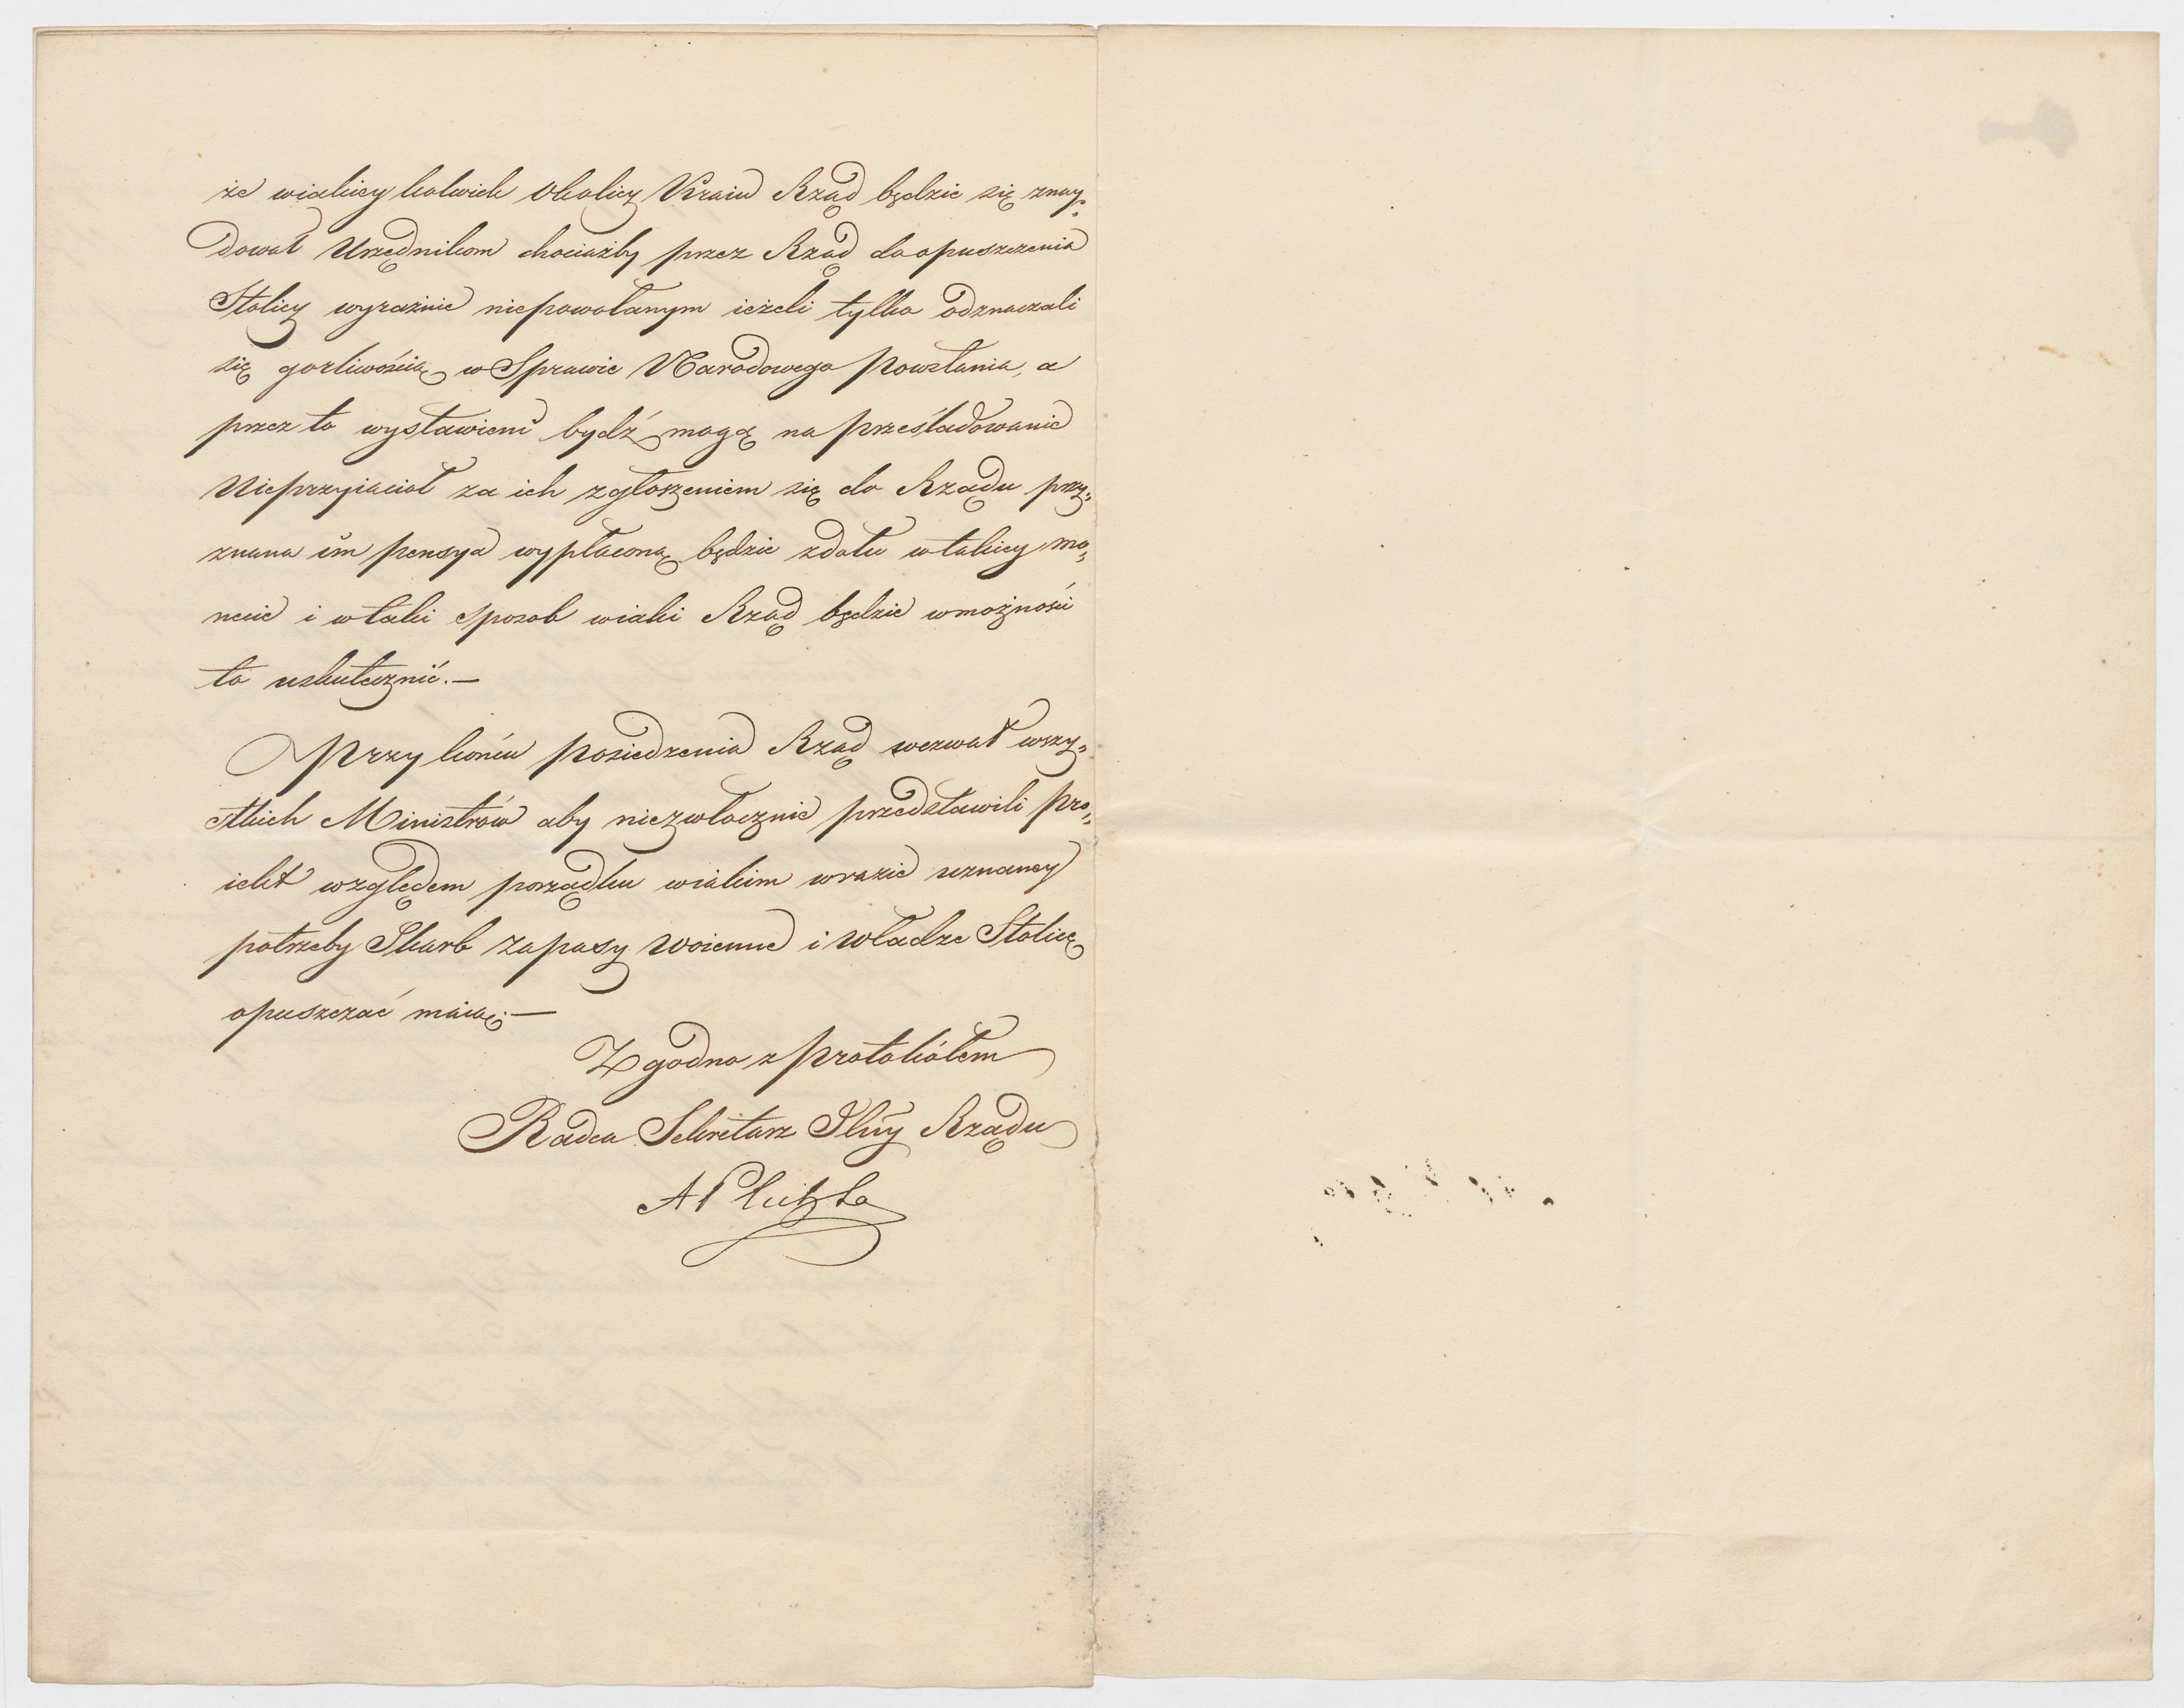 że wiakiey kolwiek Okolicy Kraiu Rząd będzie się znay„
dował Urzędnikom chociażby przez Rząd do opuszczenia
Stolicy wyraźnie niepowołanym ieżeli tylko odznaczali
się gorliwością w Sprawie Narodowego Powstania, a
przez to wystawieni bydź mogą na prześladowanie
Nieprzyiaciół za ich zgłoszeniem się do Rządu przy„
znana im pensya wypłaconą będzie zdołu w takiey mo„
necie i w taki sposob wiaki Rząd będzie wmożności
to uskutecznić.—
Przy końcu posiedzenia Rząd wezwał wszy„
stkich Ministrów aby niezwłocznie przedstawili pro„
iekt względem porządku wiakim wrazie uznaney
potrzeby Skarb zapasy woienne i władze Stolicę
opuszczać maią.—
Zgodno z Protokółem
Radca Sekretarz Jlny Rządu
A Plichta